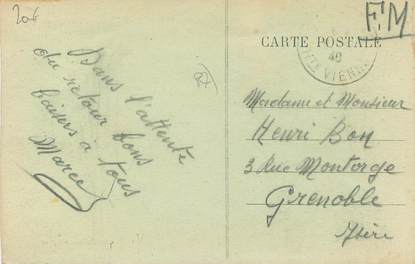 20f
F.M
CARTE POSTALE
40
HTE VIENNE
Dans l'attente
du retour bons
baisers à
tous
Marcel
Madame et Monsieur
Henri Bon
3 Rue Montorge
Grenoble
Isère